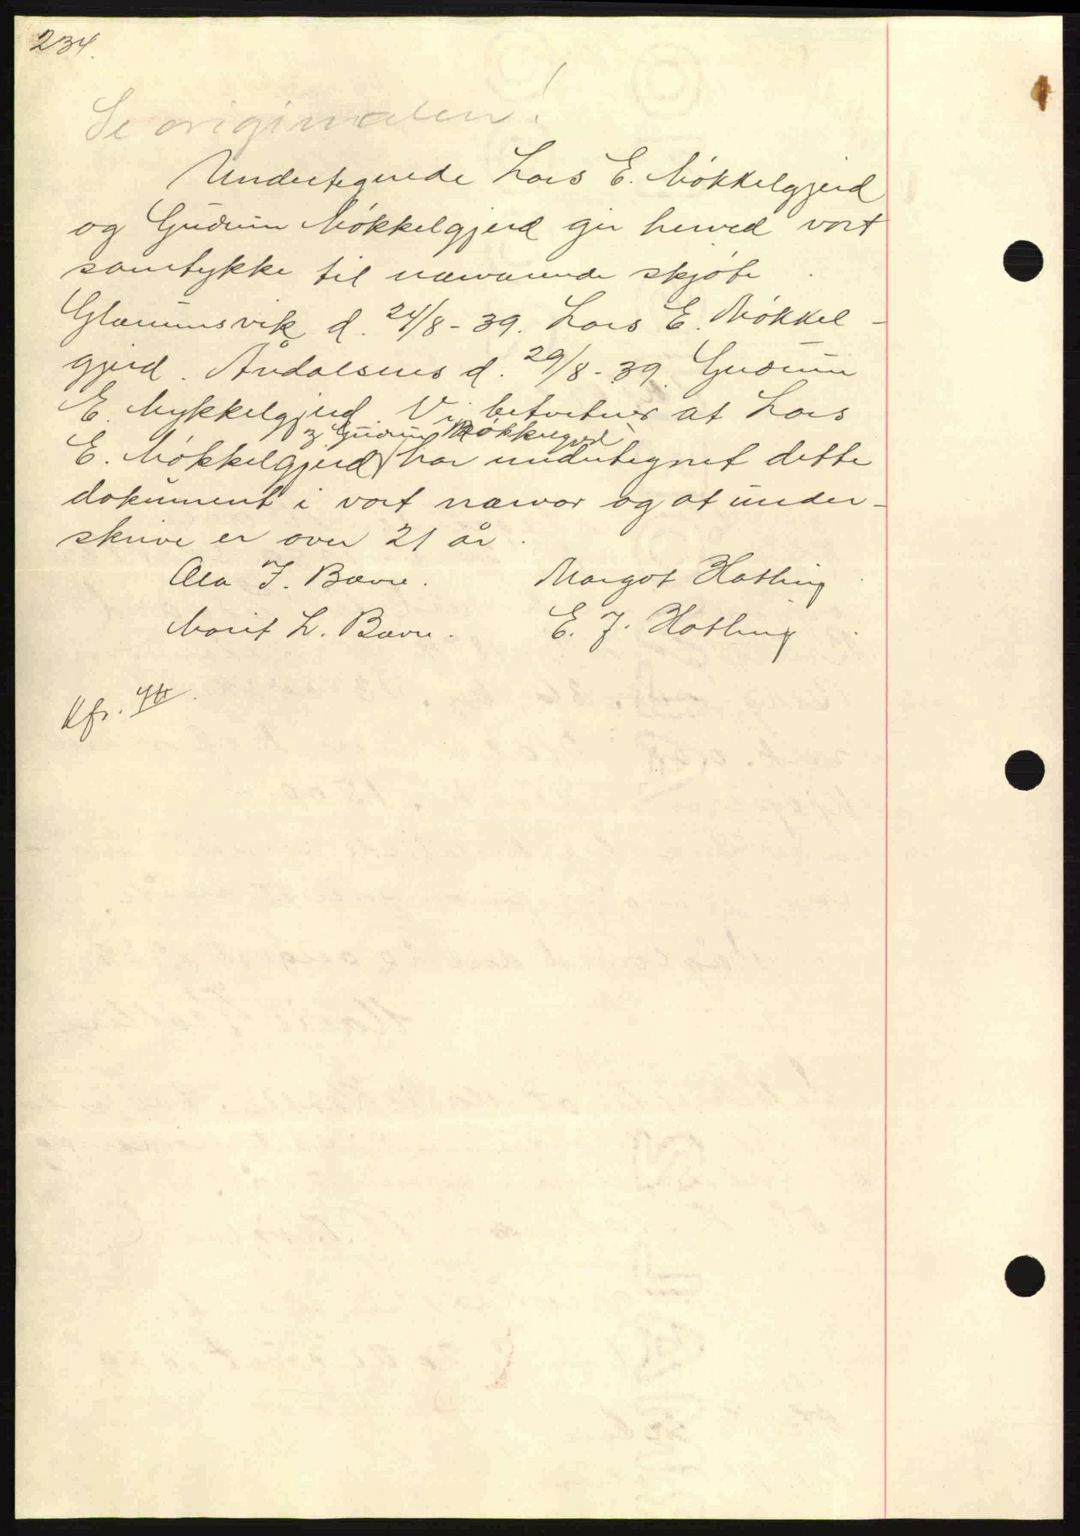 234.
Se originalen!
Undertegnede Lars E. Møkkelgjerd
og Gudrun Møkkelgjerd gir herved vort
samtykke til nærværende skjøte
Glærumsvik d. 24/8-39. Lars E. Møkkel-
gjerd. Åndalsnes d. 29/8-39. Gudrun
E. Mykkelgjerd. Vi bekrefter at Lars
& Gudrun Møkkelgjerd
E. Møkkelgjerd har undertegnet dette
dokument i vort nærvær og at under-
skrive er over 21 år.
Ola J. Bævre. Margot Hatling
Marit L. Bævre. E. J. Hatling
Kfr.